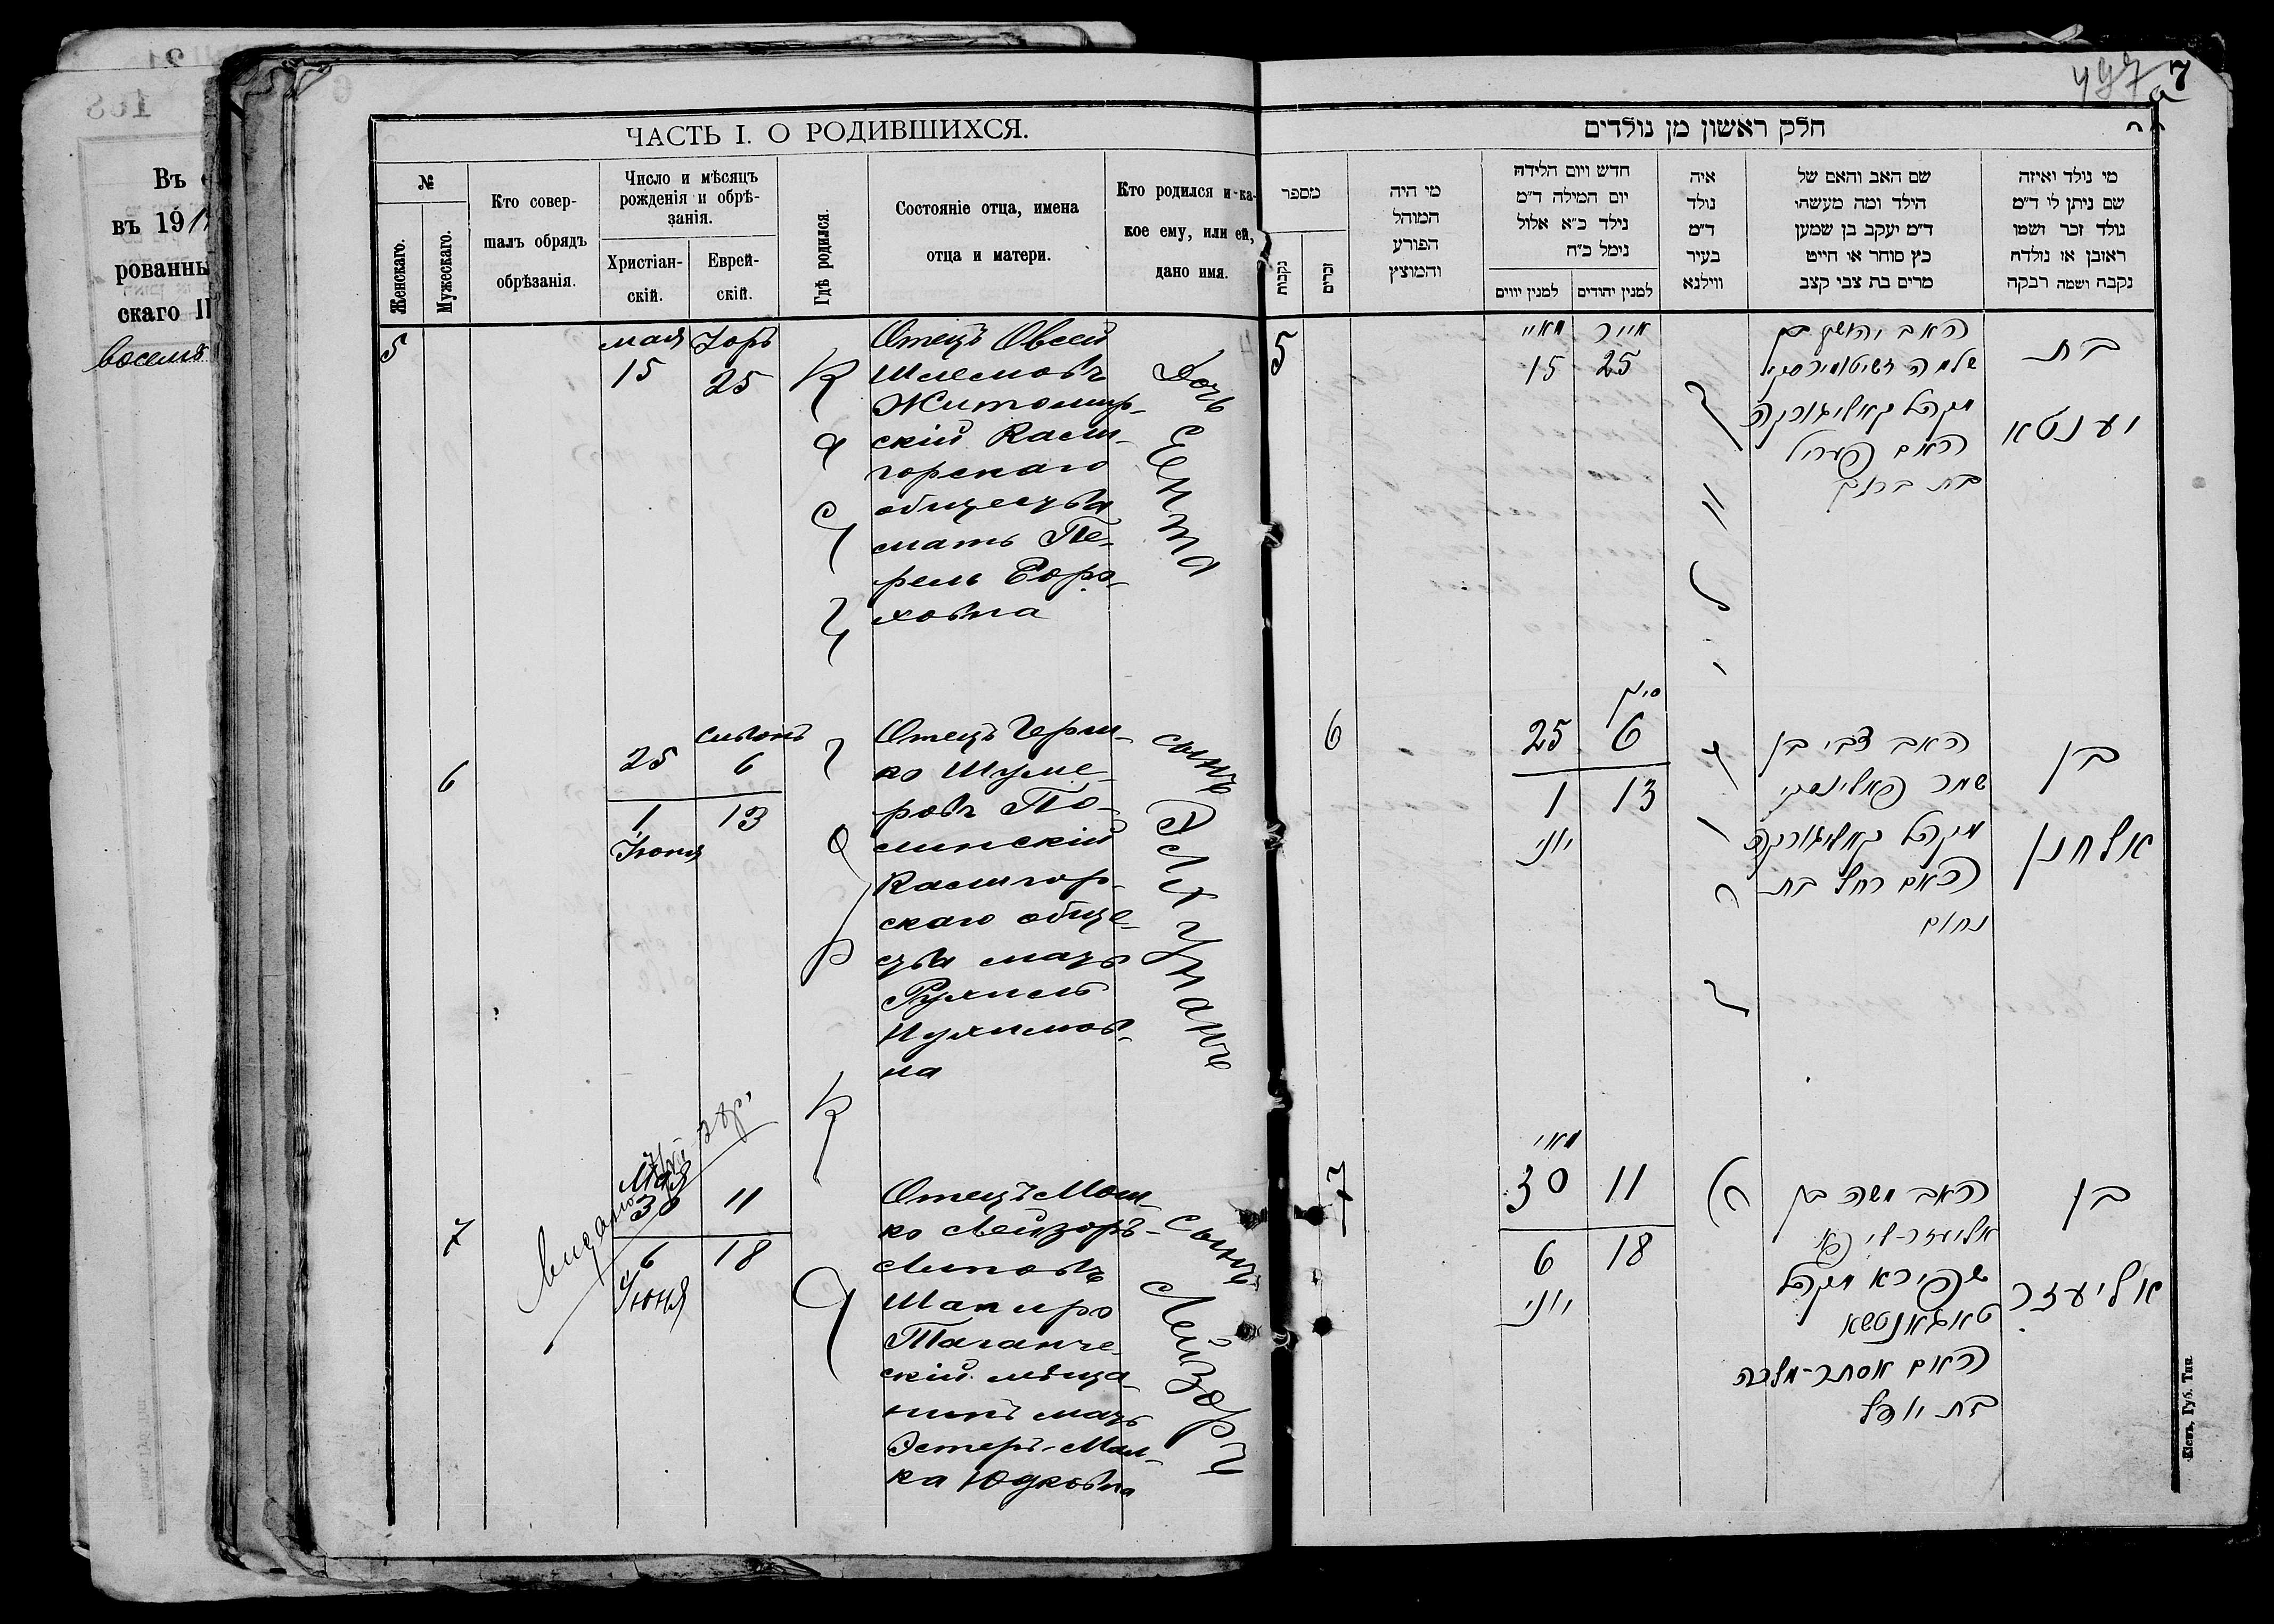 168
Въ
въ 191
рованны
скаго
восемь
ЧАСТЬ I. О РОДИВШИХСЯ.
№
Женскаго.
Мужескаго.
Кто совер-
шалъ обрядъ
обрѣзанія.
Число и мѣсяцъ
рожденія и обрѣ-
занія.
Христіан-
скій.
Еврей-
скій.
Гдѣ родился.
Состояніе отца, имена
отца и матери.
Кто родился и ка-
кое ему, или ей,
дано имя.
5
мая
15
Іоръ
25
Отецъ Овсей
Шлемовъ
Житомир-
скій Калиг-
горскаго
общества
мать Пе-
рель Боро-
ховна
Дочь
Ента
6
25
1
Іюня
Сивонъ
6
13
Отецъ Герш-
ко Шуме-
ровъ По-
линскій
Калигор-
скаго обще-
ства мать
Рухель
Нухимов-
на
сынъ
Элхунанъ
7
Мая
30
6
Іюня
11
18
Отецъ Мош-
ко Лейзоръ-
Липовъ
Шапиро
Таганче-
скій мѣща-
нинъ мать
Эстеръ-Мал-
ка Юдковна
Сынъ
Лейзоръ
7
חלק ראשון מן נולדים
מספר
נקבות
זכרים
מי היה
המוהל
הפורע
והמוצץ
חדש ויום הלידה
יום המילה ד״מ
נילד כ״א אלול
נימל כ״ח
למנין יווים
למנין יהודים
איה
נולד
ד״מ
בעיר
ווילנא
שם האב והאם של
הילד ומה מעשהו
ד״מ יעקב בן שמען
כץ סוחר או חייט
מרים בת צבי קצב
מי נולד ואיזה
שם ניתן לו ד״מ
נולד זכר ושמו
ראובן או נולדה
נקבה ושמה רבקה
5
מאיי
15
אייר
25
האב יהושע בן
שלמה זשיטאמירסקי
מקהל קאליגורקה
האם פעריל
בת ברוך
בת
יענטא
6
25
1
יוני
סיון
6
13
האב צבי בן
שמר פאלינסקי
מקהל קאליגורקה
האם רחל בת
נחום
בן
אלחנן
7
מאי
30
6
יוני
11
18
האב משה בן
אליעזר-ליפא
שפירא מקהל
טאגאנטשא
האם אסתר-מלכה
בת יודל
בן
אליעזר
Кіевъ, Губ. Тип.